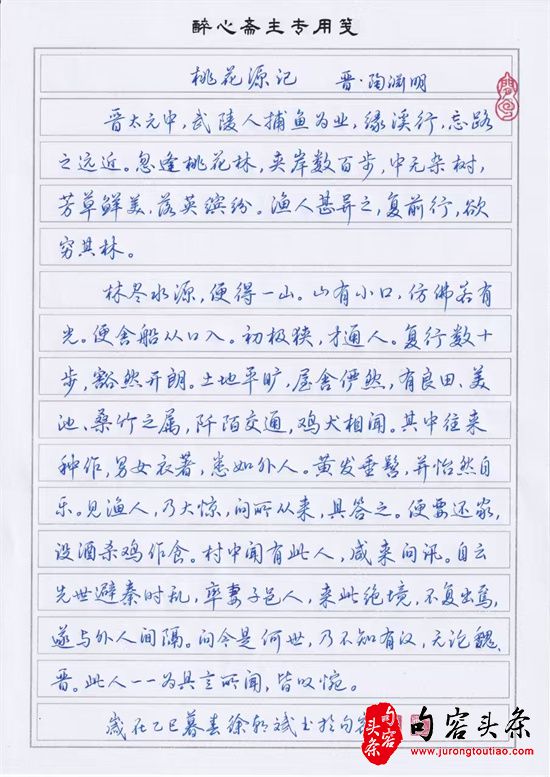 醉心斋主专用笺
桃花源记 晋·陶渊明
晋太元中,武陵人捕鱼为业,缘溪行,忘路
之远近。忽逢桃花林,夹岸数百步,中无杂树,
芳草鲜美,落英缤纷。渔人甚异之,复前行,欲
穷其林。
林尽水源,便得一山。山有小口,仿佛若有
光。便舍船从口入。初极狭,才通人。复行数十
步,豁然开朗。土地平旷,屋舍俨然,有良田、美
池、桑竹之属,阡陌交通,鸡犬相闻。其中往来
种作,男女衣著,悉如外人。黄发垂髫,并怡然自
乐。见渔人,乃大惊,问所从来,具答之。便要还家,
设酒杀鸡作食。村中闻有此人,咸来问讯。自云
先世避秦时乱,率妻子邑人,来此绝境,不复出焉,
遂与外人间隔。问今是何世,乃不知有汉,无论魏、
晋。此人一一为具言所闻,皆叹惋。
岁在乙巳暮春徐朝斌书于句容
头条
句容头条
www.jurongtoutiao.com